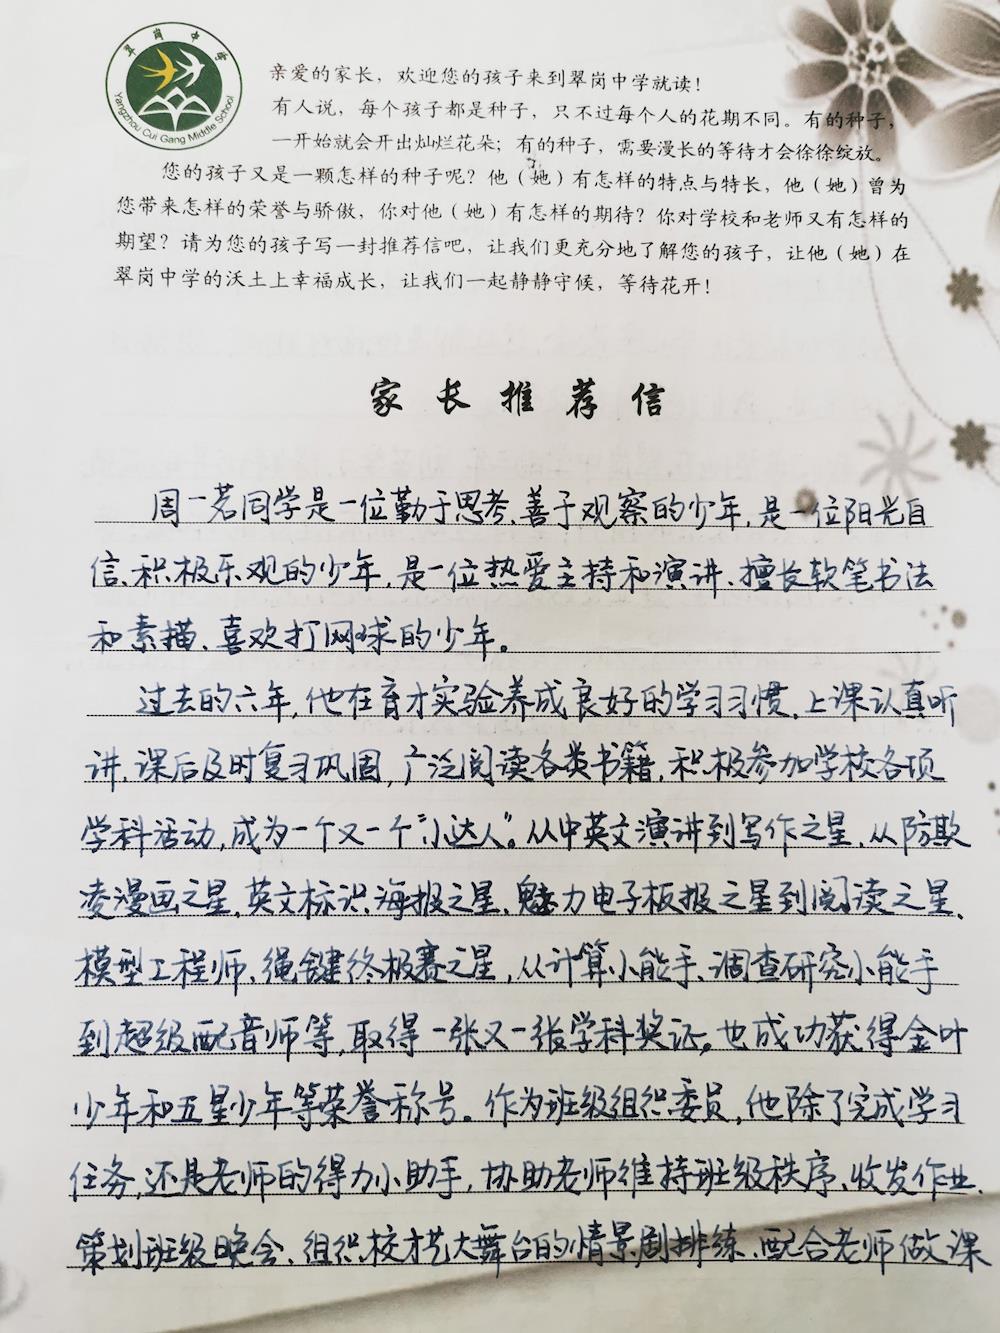 翠岗中学
Yangzhou Cui Gang Middle School
亲爱的家长，欢迎您的孩子来到翠岗中学就读！
有人说，每个孩子都是种子，只不过每个人的花期不同。有的种子，
一开始就会开出灿烂花朵；有的种子，需要漫长的等待才会徐徐绽放。
您的孩子又是一颗怎样的种子呢？他（她）有怎样的特点与特长，他（她）曾为
您带来怎样的荣誉与骄傲，你对他（她）有怎样的期待？你对学校和老师又有怎样的
期望？请为您的孩子写一封推荐信吧，让我们更充分地了解您的孩子，让他（她）在
翠岗中学的沃土上幸福成长，让我们一起静静守候，等待花开！
家长推荐信
周一茗同学是一位勤于思考、善于观察的少年，是一位阳光自
信、积极乐观的少年，是一位热爱主持和演讲、擅长软笔书法
和素描、喜欢打网球的少年。
过去的六年，他在育才实验养成良好的学习习惯，上课认真听
讲，课后及时复习巩固，广泛阅读各类书籍，积极参加学校各项
学科活动，成为一个又一个“小达人”。从中英文演讲到写作之星，从防欺
凌漫画之星、英文标识海报之星、魅力电子板报之星到阅读之星、
模型工程师、绳键终极赛之星，从计算小能手、调查研究小能手
到超级配音师等，取得一张又一张学科奖证。也成功获得金叶
少年和五星少年等荣誉称号。作为班级组织委员，他除了完成学习
任务，还是老师的得力小助手，协助老师维持班级秩序、收发作业、
策划班级晚会、组织校才艺大舞台的情景剧排练、配合老师做课